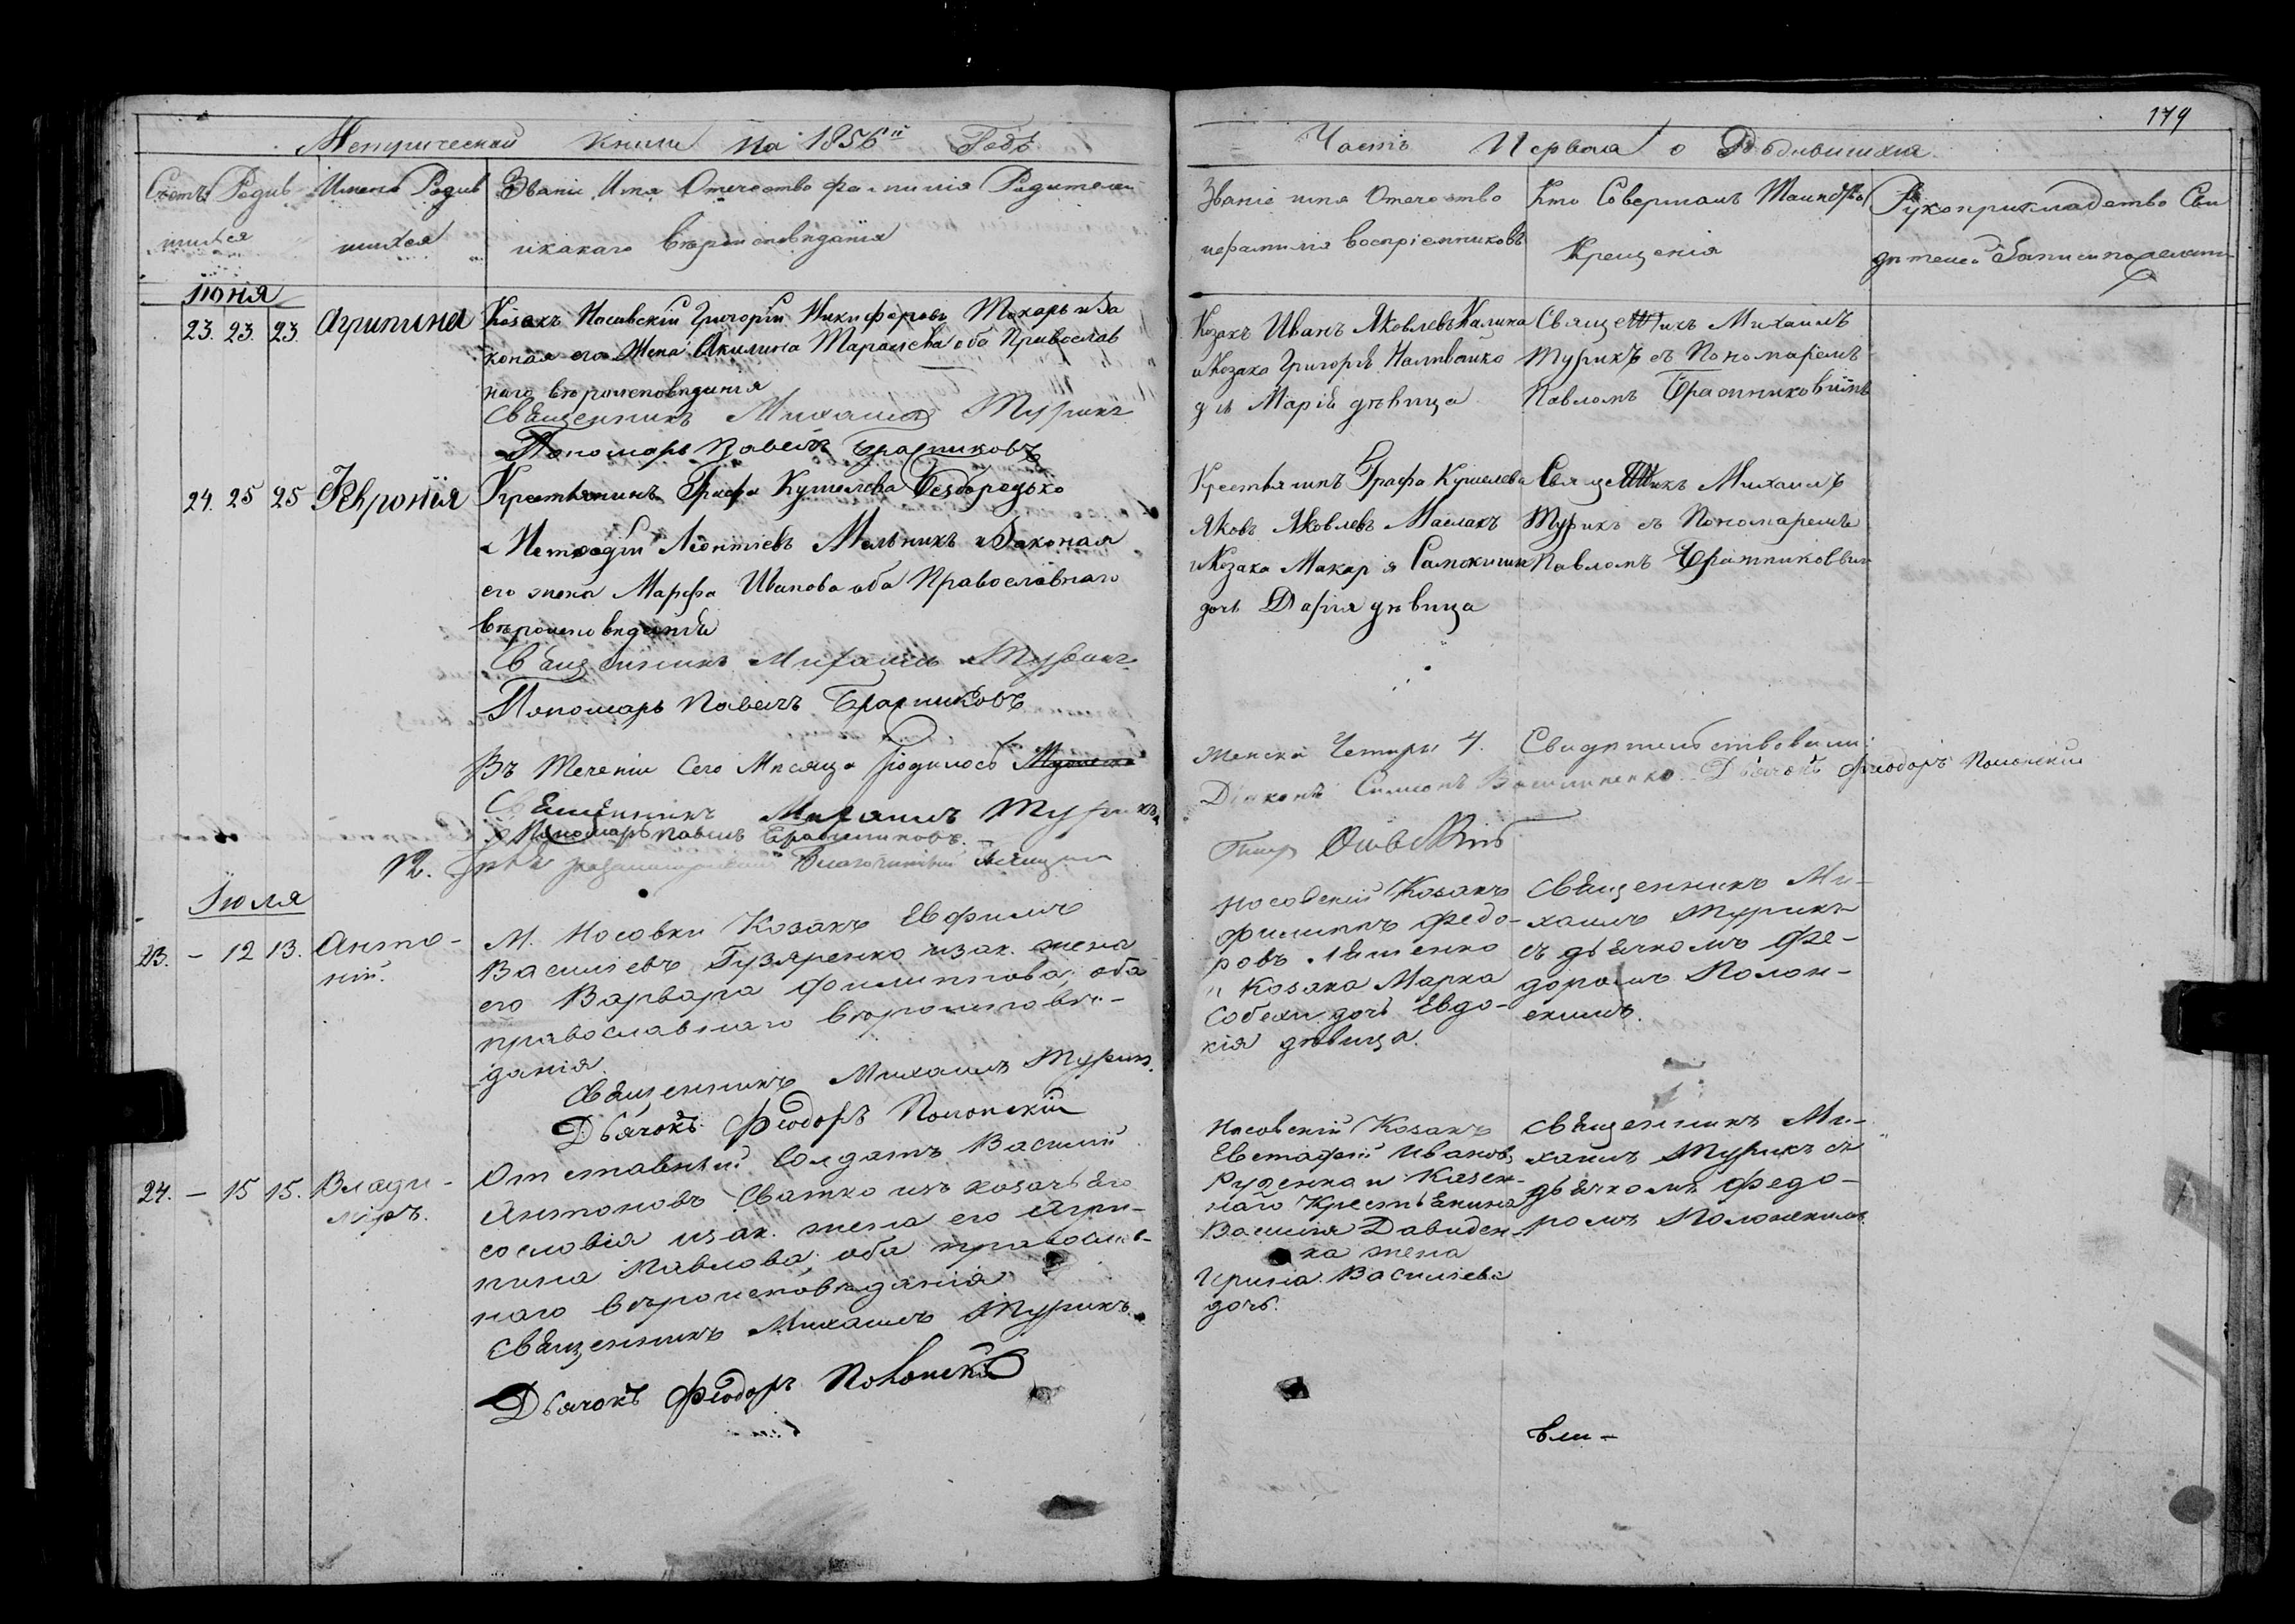 179
Метрической книги на 1856й Годъ
Часть Первая о Родившихся
Счетъ Родив Имена Родив Званіе Имя Отечество фамилія Родителей
шихся шихся икакаго Вѣроисповѣданія
Званіе имя Отечество Кто Совершалъ Таинство Рукоприкладство Сви
ифамилія воспріемниковъ Крещенія дѣтелей Записи пожеланію
Іюня
23. 23. 23. Агрипина Козакъ Носовскій Григорій Никифоровъ Токарь иЗа
коная его Жена Акилина Тарасіева оба Православ
наго вѣроисповѣданія
Священникъ Михаилъ Турикъ
Пономарь Павелъ Бражниковъ
Козакъ Иванъ Яковлевъ Калина
иКозака Григорія Наливайко
Марій дѣвица
Священникъ Михаилъ
Турикъ съ Пономаремъ
Павломъ Бражниковымъ
24. 25 25 Февронія Крестьянинъ Графа Кушелева Безбородько
Леонтіевъ Мельникъ иЗаконая
его жена Марфа Иванова оба Православнаго
вѣроисповѣданія
Священникъ Михаилъ Турикъ
Пономарь Павелъ Бражниковъ
Крестьянинъ Графа Кушелева
Яковъ Яковлевъ Маслакъ
иКозака Макарія
дочь Дарія дѣвица
Священникъ Михаилъ
Турикъ съ Пономаремъ
Павломъ
Въ Теченіи Сего Мѣсяца Родилось
Священникъ Михаилъ Турикъ
Пономарь Павелъ Бражниковъ
Благочинный
женска Четыри 4. Свидѣтельствовали:
Діаконъ Симеонъ Василенко Дьячокъ Феодоръ Полонскій
Іюля
23. – 12 13. Анто-
ній.
М. Носовки Козакъ Евфимъ
Василіевъ Гузяренко изак. жена
его Варвара Филиппова; оба
православнаго вѣроисповѣ-
данія.
Священникъ Михаилъ Турикъ.
Дьячокъ Феодоръ Полонскій
Носовскій Козакъ
Филиппъ Федо-
ровъ Ляшенко
и Козака Марка
дочь Евдо-
кія дѣвица.
Священникъ Ми-
хаилъ Турикъ
съ дьячкомъ Фе-
доромъ Полон-
скимъ.
24. – 15 15. Влади-
міръ.
Отставный Солдатъ Василій
Антоновъ Сватко изъ козачьяго
сословія изак. жена его Агри-
пина Павлова; оба православ-
наго вѣроисповѣданія
Священникъ Михаилъ Турикъ.
Дьячокъ Феодоръ Полонскій
Носовскій Козакъ
Евстафій Ивановъ
Руденко и Казен-
наго Крестьянина
Василія Давиден-
ка жена
Ирина Василіева
дочь.
Священникъ Ми-
хаилъ Турикъ съ
дьячкомъ Федо-
ромъ Полонскимъ.